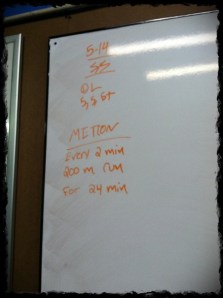 5-14
SS
OL
METCON
Every 2 min
200 m run
For 24 min